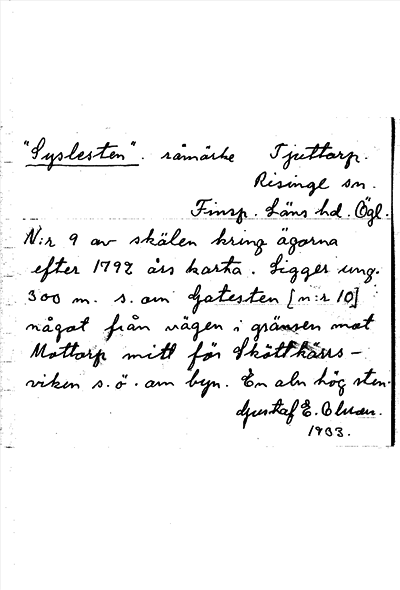 "Syslesten". råmärke Tjuttorp.
Risinge sn.
Finsp. Läns hd. Ögl.
N:r 9 av skälen kring ägorna
efter 1792 års karta. Ligger ung.
300 m. s. om Gatesten [n:r 10]
något från vägen i gränsen mot
Mottorp mitt för Sköttkärrs-
viken s.ö. om byn. En aln hög sten.
Gustaf E.
1933.